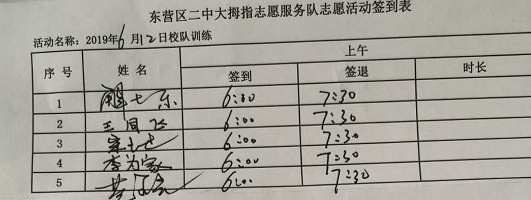 东营区二中大拇指志愿服务队志愿活动签到表
活动名称：2019年6月12日校队训练
序号 姓名 上午 时长
签到 签退
1 6:00 7:30
2 王同飞 6:00 7:30
3 6:00 7:30
4 李为家 6:00 7:30
5 6:00 7:30